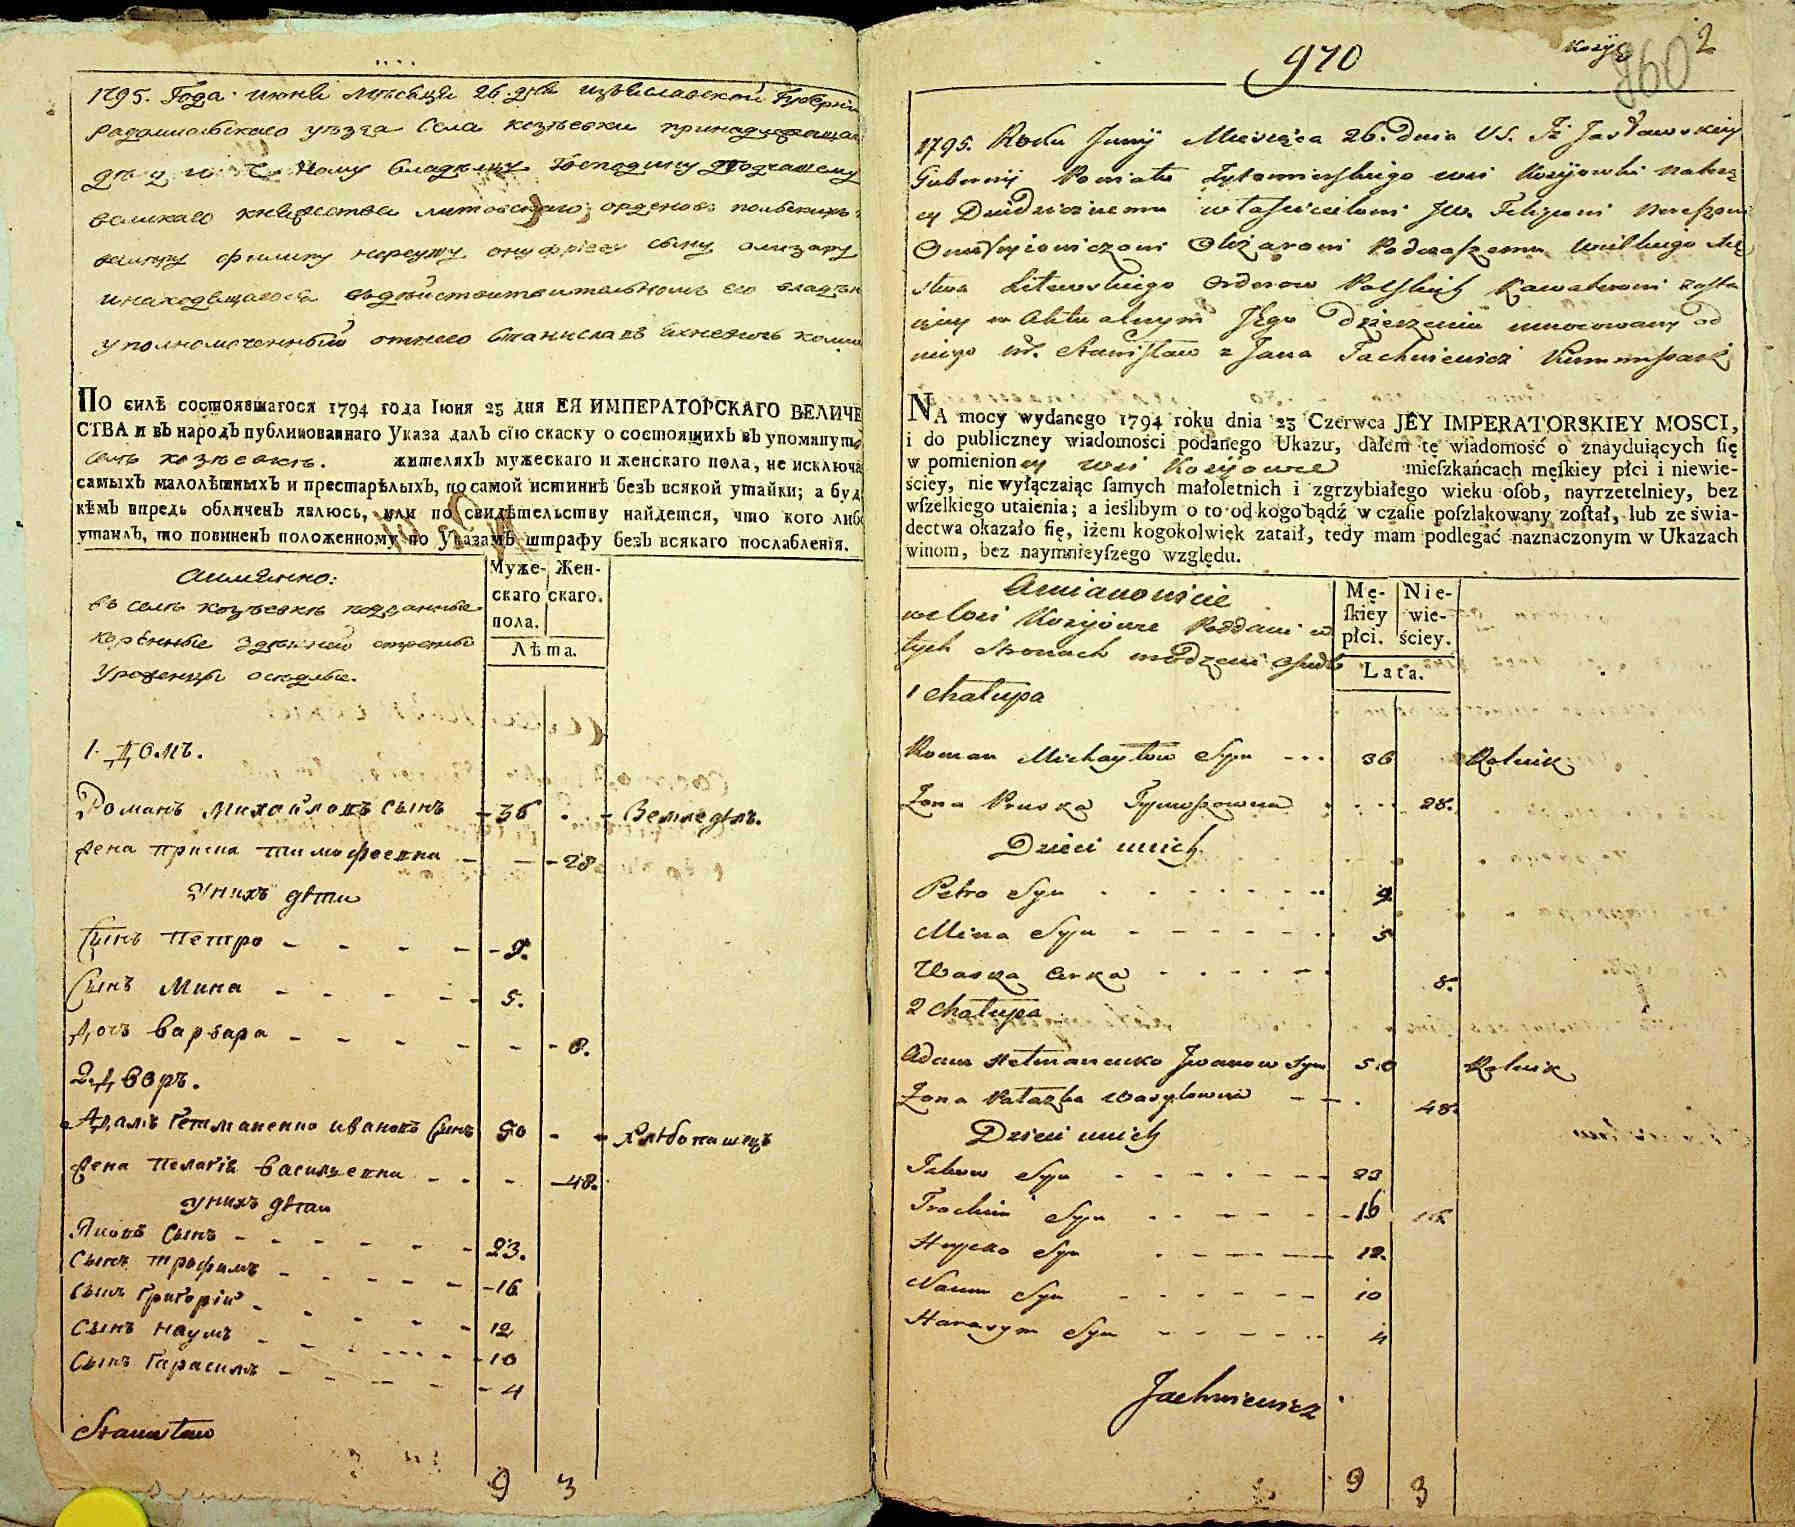 1795. Года июня месяца 26. дня изъяславской Губернiи
радомысльскаго уезда Села козѣевки принадлежащаго
владелцу Господину подчашему
великаго княжества литовскаго, орденовъ польскихъ
филипу нереушу онуфрiеву сыну олизару
инаходящагося вдѣйствительномъ его владѣнi
уполномоченный отнего Станиславъ яхневичь комис
ПО силѣ состоявшагося 1794 года Iюня 23 дня ЕЯ ИМПЕРАТОРСКАГО ВЕЛИЧЕ
СТВА и въ народъ публикованнаго Указа далъ сiю скаску о состоящихъ въ упомянуто
селѣ козѣевкѣ. жителяхъ мужескаго и женскаго пола, не исключа
самыхъ малолѣтныхъ и престарѣлыхъ, по самой истиннѣ безъ всякой утайки; а буд
кѣмъ впредь обличенъ явлюсь, или по свидѣтельству найдется, что кого либо
утаилъ, то повиненъ положенному по Указамъ штрафу безъ всякаго послабленiя.
Аимянно: Муже- Жен-
въ селѣ козѣевкѣ подданные скаго скаго.
коренные пола.
уроженцы оседлые. Лѣта.
1. Домъ.
Романъ Михайловъ сынъ - 36 . - Земледѣлъ.
жена Приска тимофеевна - - - 28
Унихъ дѣти
Сынъ Петро - - - - - 9.
Сынъ Мина - - - - - 5.
Дочь варвара - - - - - - 8.
2. Дворъ.
Адамъ Гетманенко ивановъ Сынъ 50 - - хлѣбопашецъ
жена Пелагiя васильевна - - - 48.
Унихъ дѣти
Яковъ Сынъ - - - - - - 23.
Сынъ трофимъ - - - - - - 16
Сынъ Григорiй - - - - 12
Сынъ Наумъ - - - - - 10
Сынъ Гарасимъ - - - - - 4
Stanisław
9 3
970
2
860
1795. Roku Juny Miesiąca 26. Dnia V.S. Jż Jasławskiey
Gubernij Powiatu Żytomierskiego wsi Kozijowki należą
cy Dziedzicznemu właścicielowi JW. Filipowi Nereszowi
Onufryiowiczowi Olizarowi Podczaszemu Wielkiego Xię
stwa Litewskiego Orderow Polskich Kawalerowi zosta
iący w Aktualnym Jego Dzierżeniu umocowany od
niego W. Stanisław z Jana Jachniewicz Kommissarz
NA mocy wydanego 1794 roku dnia 23 Czerwca JEY IMPERATORSKIEY MOSCI,
i do publiczney wiadomości podanego Ukazu, dałem tę wiadomość o znayduiących ſię
w pomienioney wsi Kozijowce mieſzkańcach męſkiey płci i niewie-
ściey, nie wyłączaiąc ſamych małoletnich i zgrzybiałego wieku oſob, nayrzetelniey, bez
wſzelkiego utaienia; a ieślibym o to od kogo bądź w czaſie poſzlakowany zoſtał, lub ze świa-
dectwa okazało ſię, iżem kogokolwięk zataił, tedy mam podlegać naznaczonym w Ukazach
winom, bez naymnieyſzego względu.
Amianowicie Mę- Nie-
we wsi Kozijowce Poddani w ſkiey wie-
tych stronach urodzeni osiedli płci. ściey.
1 chałupa Lata.
Roman Michayłow Syn - - - 36 Rolnik
Żona Pruska Tymoszowna . - - - 28.
Dzieci unich
Petro Syn - - - - - - 9.
Mina Syn - - - - - - 5
Waska Corka - - - - - 8.
2 chałupa
Adam Hetmanenko Jwanow Syn 50 Rolnik
Żona Pałazka Wasylowna - - . 48.
Dzieci unich
Jakow Syn - - - - - - 23
Trochim Syn - - - - - -16
Hryćko Syn - - - - - 12.
Naum Syn - - - - - - 10
Harasym Syn - - - - - 4
Jachniewicz
9 3